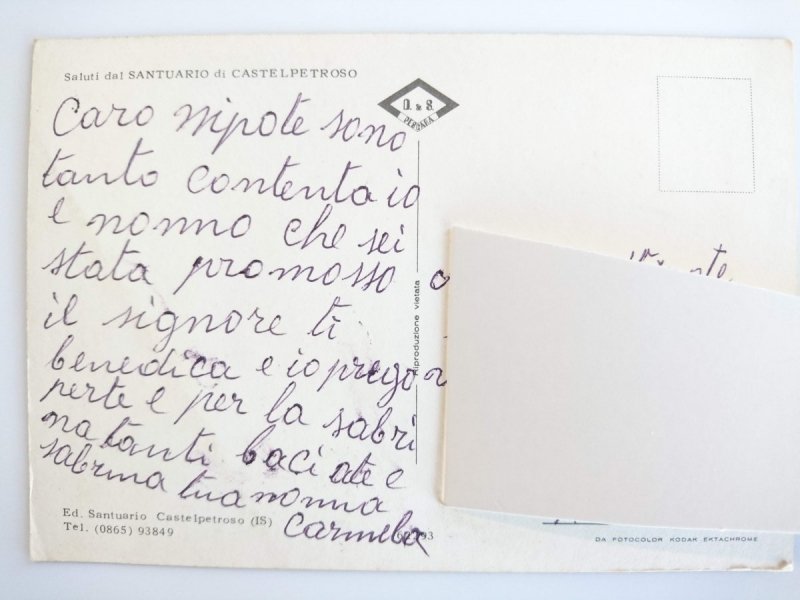 Saluti dal SANTUARIO di CASTELPETROSO
Caro nipote sono
tanto contenta io
e nonno che sei
stata promosso
il signore ti
benedica e io prego
perte e per la sabri
na tanti baci ate e
sabrina tua nonna
Carmela
Ed. Santuario Castelpetroso (IS)
Tel. (0865) 93849
D. & S.
PESCARA
Riproduzione vietata
DA FOTOCOLOR KODAK EKTACHROME